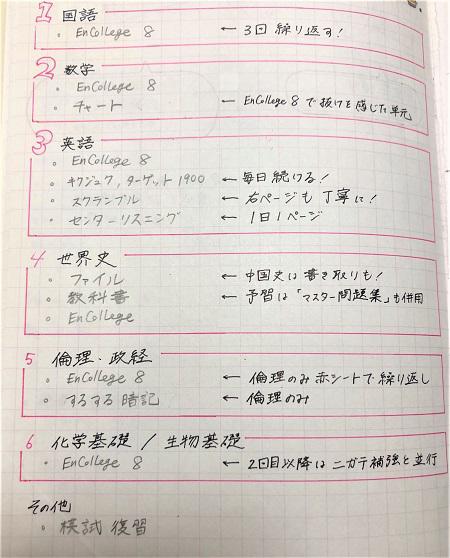 1 国語
・ EnCollege 8 ← 3回 繰り返す!
2 数学
・ EnCollege 8
・ チャート ← EnCollege 8 で抜けを感じた単元
3 英語
・ EnCollege 8
・ キクジュク, ターゲット1900 ← 毎日続ける!
・ スクランブル ← 右ページも丁寧に!
・ センターリスニング ← 1日1ページ
4 世界史
・ ファイル ← 中国史は書き取りも!
・ 教科書 ← 予習は「マスター問題集」も併用
・ EnCollege
5 倫理・政経
・ EnCollege 8 ← 倫理のみ赤シートで繰り返し
・ するする暗記 ← 倫理のみ
6 化学基礎 / 生物基礎
・ EnCollege 8 ← 2回目以降はニガテ補強と並行
その他
・ 模試復習